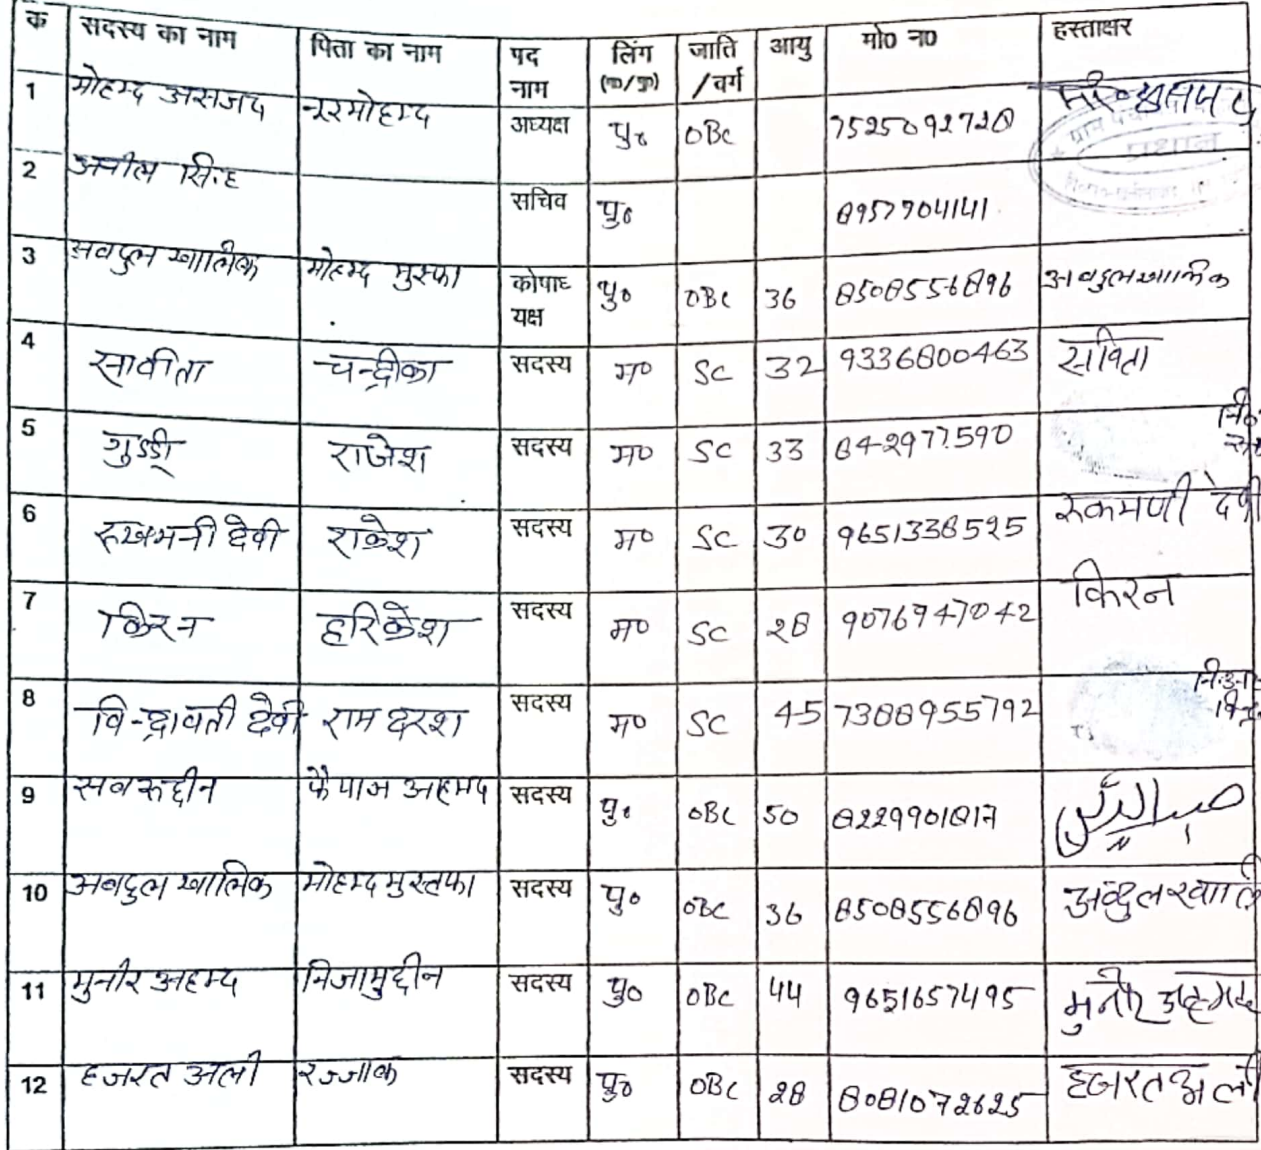 क सदस्य का नाम पिता का नाम पद नाम लिंग (म०/पु०) जाति / वर्ग आयु मो0 न0 हस्ताक्षर
1 मोहम्द असजद नूरमोहम्द अध्यक्ष पु० OBC 7525092728
2 अनील सिंह सचिव पु० 8957904141
3 अवदुल खालिक मोहम्द मुस्फा कोषाध्यक्ष पु० OBC 36 8508556896 अवदुल खालिक
4 सावीता चन्द्रीका सदस्य म० SC 32 9336800463 सविता
5 गुड्डी राजेश सदस्य म० SC 33 842977590 नि०
6 रूखमनी देवी राकेश सदस्य म० SC 30 9651338595 रूकमणी देवी
7 किरन हरिकेश सदस्य म० SC 28 9076947042 किरन
8 विन्द्रावती देवी राम दरश सदस्य म० SC 45 7388955792
9 सवरूद्दीन फैयाज अहमद सदस्य पु० OBC 50 8229901817
10 अवदुल खालिक मोहम्द मुस्तफा सदस्य पु० OBC 36 8508556896 अब्दुल खालि
11 मुनीर अहम्द निजामुद्दीन सदस्य पु० OBC 44 9651657495 मुनीर अहमद
12 हजरत अली रज्जाक सदस्य पु० OBC 28 8081072625 हजरत अली